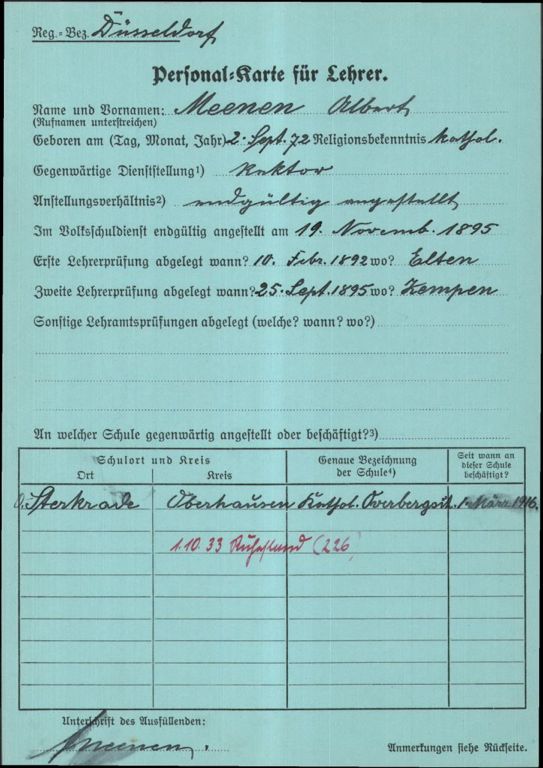 Reg.-Bez. Düsseldorf
Personal-Karte für Lehrer.
Name und Vornamen: Meenen Albert
(Rufnamen unterstreichen)
Geboren am (Tag, Monat, Jahr) 2. Sept. 72 Religionsbekenntnis kathol.
Gegenwärtige Dienststellung¹) Rektor
Anstellungsverhältnis²) endgültig angestellt
Im Volksschuldienst endgültig angestellt am 19. Novemb. 1895
Erste Lehrerprüfung abgelegt wann? 10. Febr. 1892 wo? Elten
Zweite Lehrerprüfung abgelegt wann? 25. Sept. 1895 wo? Kempen
Sonstige Lehramtsprüfungen abgelegt (welche? wann? wo?)
An welcher Schule gegenwärtig angestellt oder beschäftigt?³)
Schulort und Kreis
Ort Kreis
Genaue Bezeichnung der Schule⁴)
Seit wann an dieser Schule beschäftigt?
O. Sterkrade Oberhausen Kathol. Overbergsch. 1. März 1916.
1.10.33 Ruhestand (226
Unterschrift des Ausfüllenden:
Meenen.
Anmerkungen siehe Rückseite.